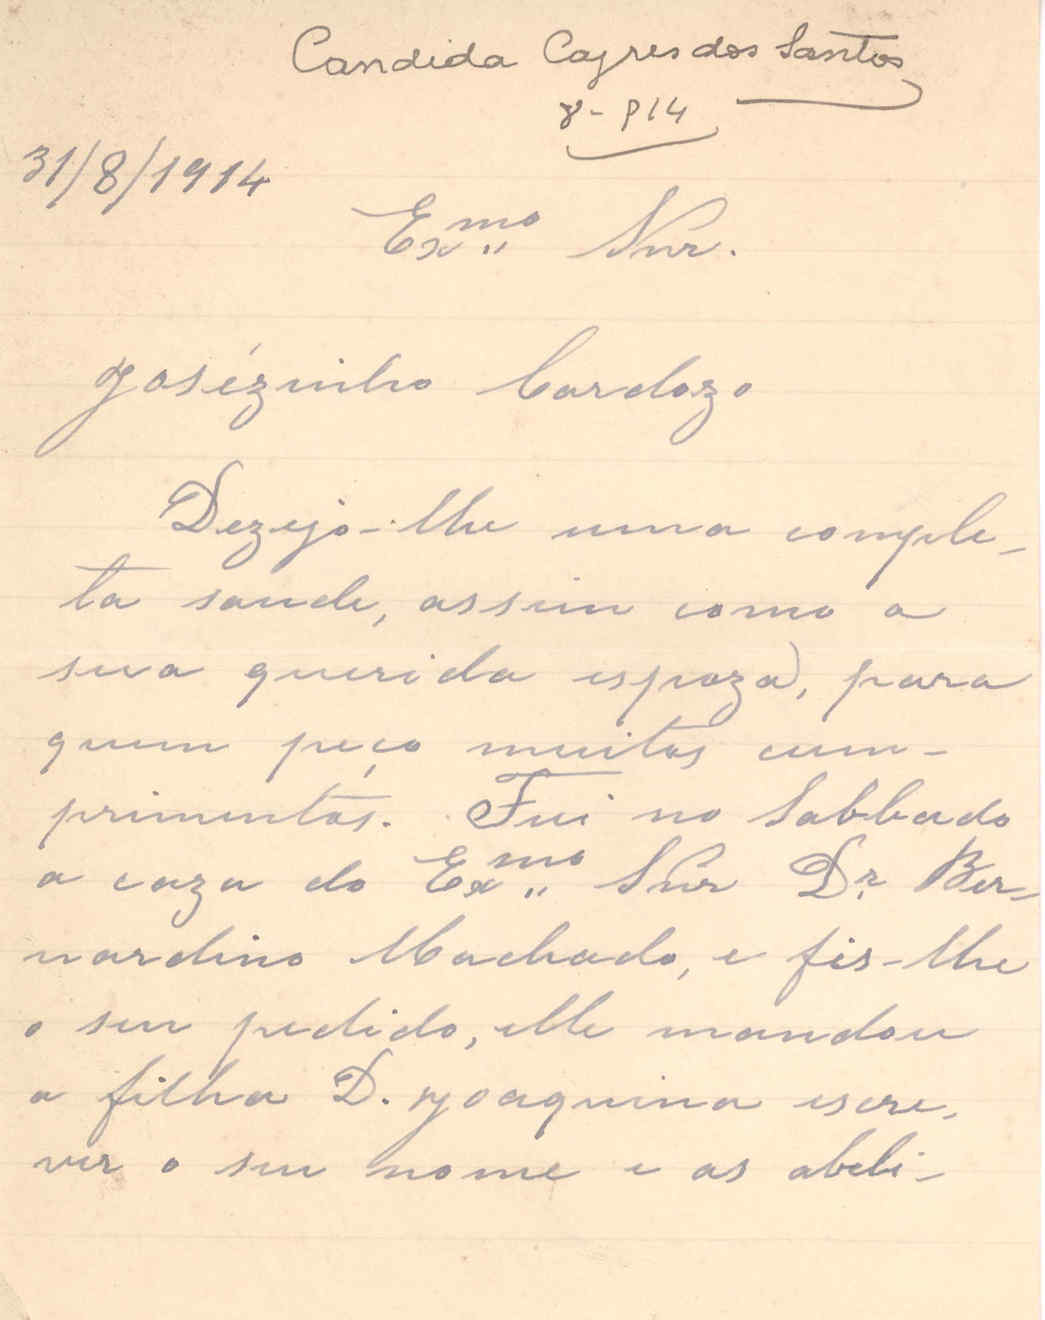 Candida Cayres dos Santos
8-914
31/8/1914
Exmo Snr.
Josézinho Cardozo
Dezejo-lhe uma comple-
ta saude, assim como a
sua querida espoza, para
quem peço muitos cum-
primentos. Fui no Sabbado
a caza do Exmo Snr Dr. Ber-
nardino Machado, e fis-lhe
o seu pedido, elle mandou
a filha D. Joaquina escre-
ver o seu nome e as abeli-